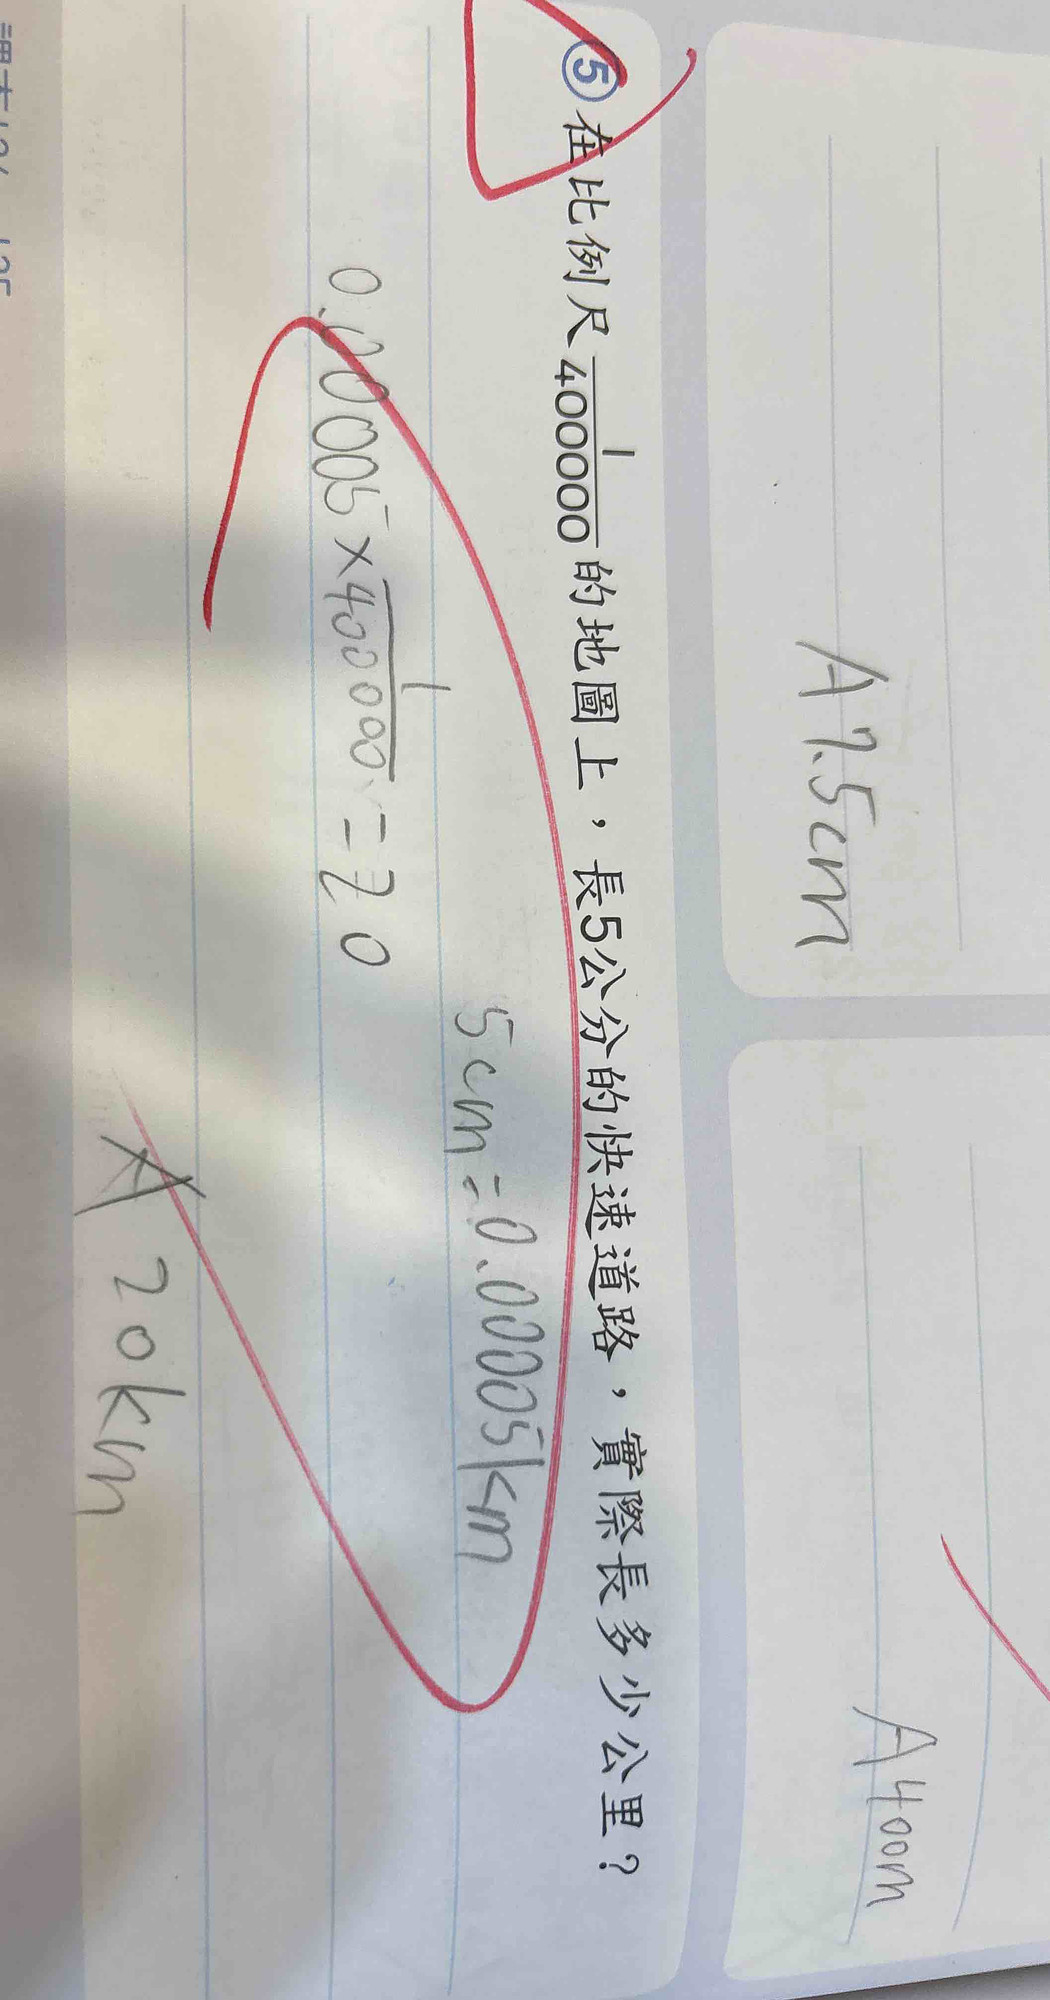 A 7.5cm
A 400m
⑤在比例尺 1/400000 的地圖上，長5公分的快速道路，實際長多少公里？
5cm=0.00005km
0.00005×1/400000=20
A 20km